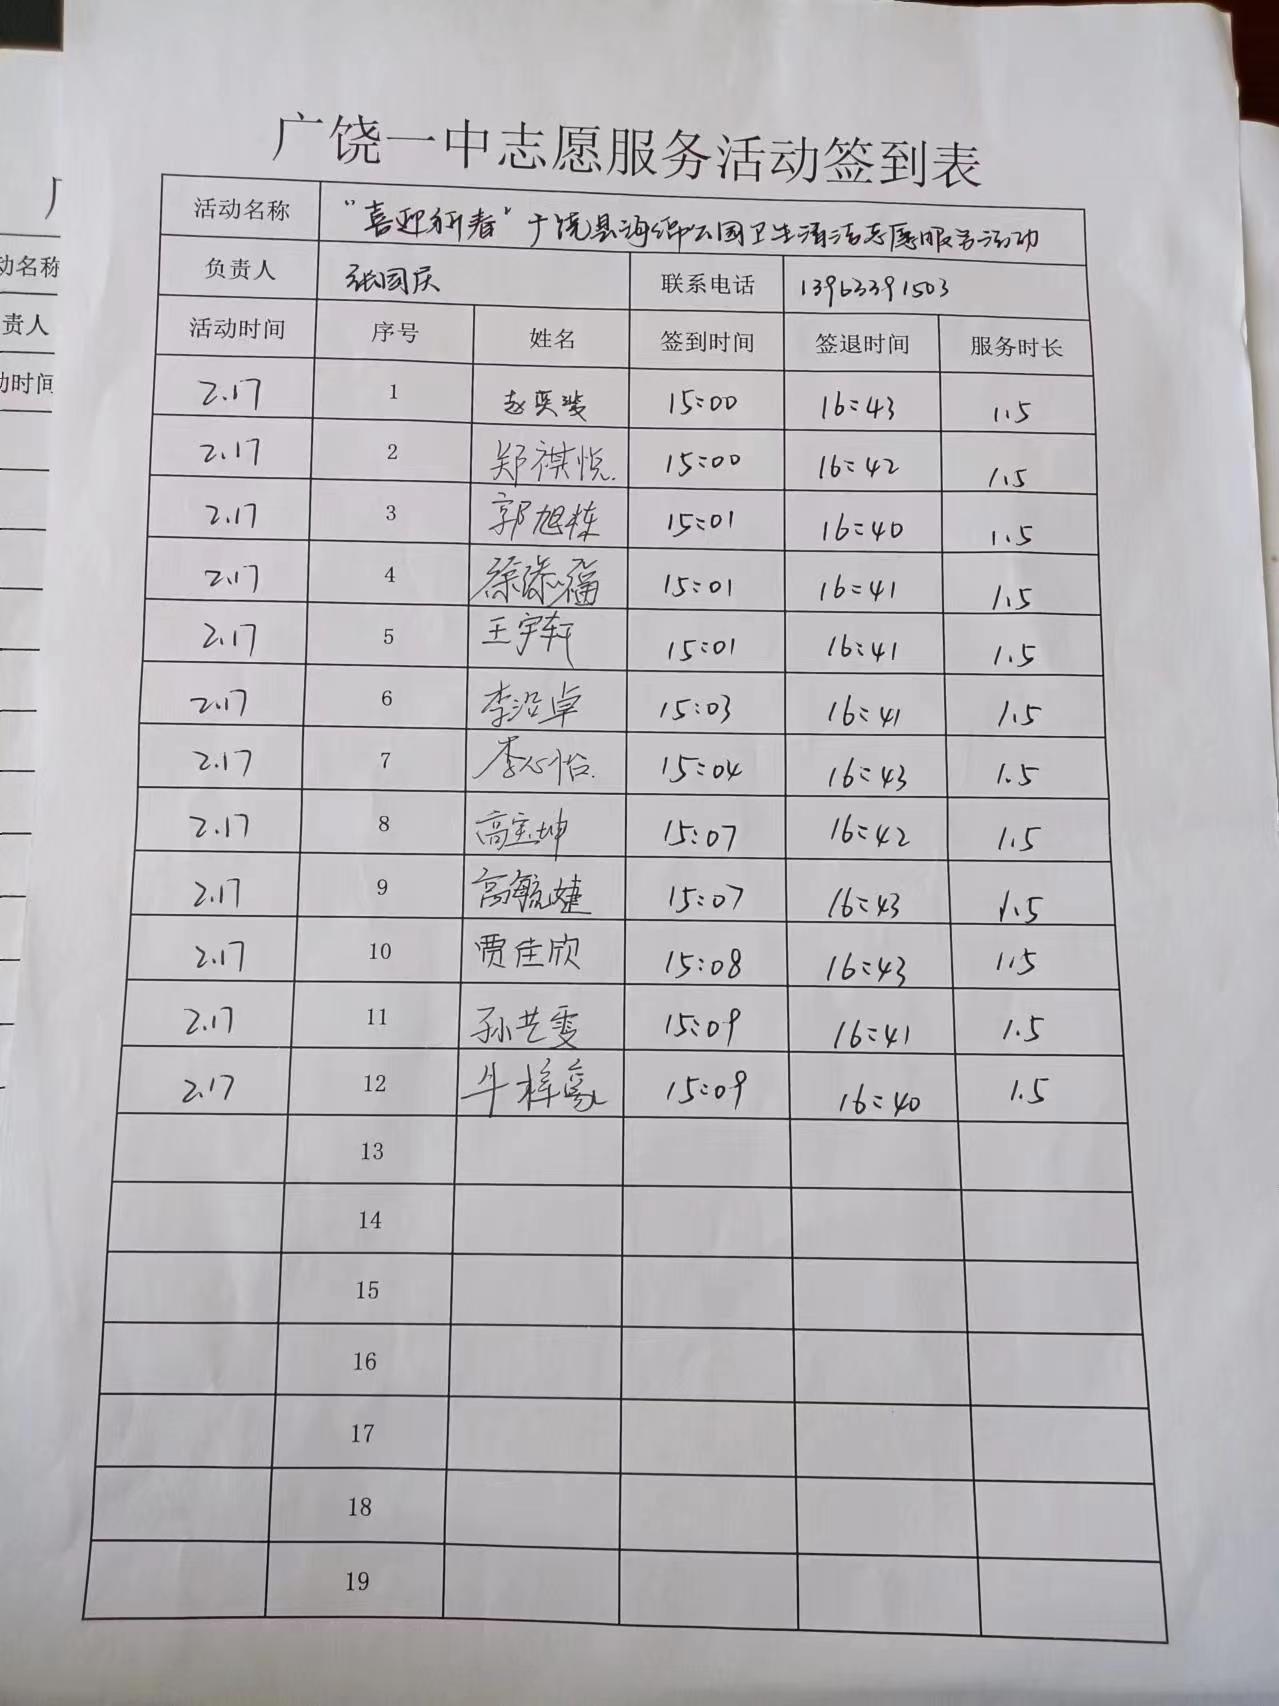 广饶一中志愿服务活动签到表
活动名称 “喜迎新春”广饶县海绵公园卫生清洁志愿服务活动
负责人 张国庆 联系电话 13963391503
活动时间 序号 姓名 签到时间 签退时间 服务时长
2.17 1 赵奕斐 15:00 16:43 1.5
2.17 2 郑祺悦. 15:00 16:42 1.5
2.17 3 郭旭栋 15:01 16:40 1.5
2.17 4 徐添福 15:01 16:41 1.5
2.17 5 王宇轩 15:01 16:41 1.5
2.17 6 李沿卓 15:03 16:41 1.5
2.17 7 李心怡. 15:04 16:43 1.5
2.17 8 高宝坤 15:07 16:42 1.5
2.17 9 高毓婕 15:07 16:43 1.5
2.17 10 贾佳欣 15:08 16:43 1.5
2.17 11 孙艺雯 15:09 16:41 1.5
2.17 12 牛梓豪 15:09 16:40 1.5
13
14
15
16
17
18
19
动名称
责人
动时间